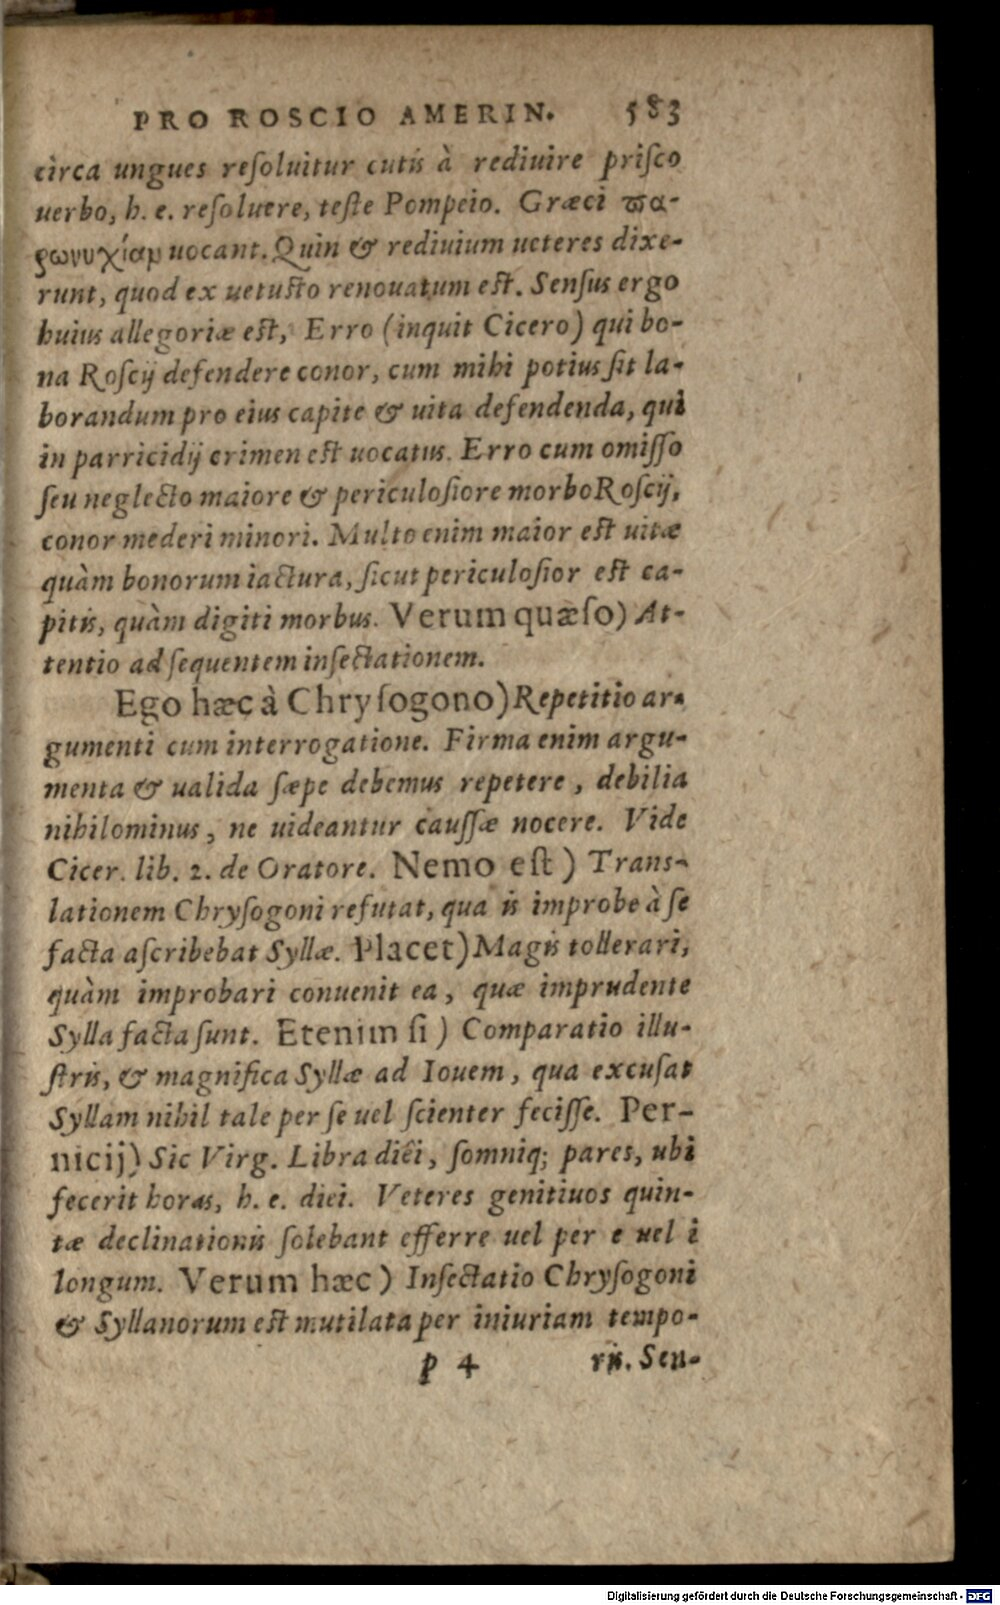 PRO ROSCIO AMERIN. 583
circa ungues reſoluitur cutis à rediuire priſco
uerbo, h. e. reſoluere, teſte Pompeio. Græci ϖα-
ρωνυχίαμ uocant. Quin & rediuium ueteres dixe-
runt, quod ex uetuſto renouatum eſt. Senſus ergo
huius allegoriæ eſt, Erro (inquit Cicero) qui bo-
na Roſcij defendere conor, cum mihi potius ſit la-
borandum pro eius capite & uita defendenda, qui
in parricidij crimen eſt uocatus. Erro cum omiſſo
ſeu neglecto maiore & periculoſiore morbo Roſcij,
conor mederi minori. Multo enim maior eſt uitæ
quàm bonorum iactura, ſicut periculoſior eſt ca-
pitis, quàm digiti morbus. Verum quæſo) At-
tentio ad ſequentem inſectationem.
Ego hæc à Chryſogono) Repetitio ar-
gumenti cum interrogatione. Firma enim argu-
menta & ualida ſæpe debemus repetere, debilia
nihilominus, ne uideantur cauſſæ nocere. Vide
Cicer. lib. 2. de Oratore. Nemo eſt) Trans-
lationem Chryſogoni refutat, qua is improbe à ſe
facta aſcribebat Syllæ. Placet) Magis tollerari,
quàm improbari conuenit ea, quæ imprudente
Sylla facta ſunt. Etenim ſi) Comparatio illu-
ſtris, & magnifica Syllæ ad Iouem, qua excuſat
Syllam nihil tale per ſe uel ſcienter feciſſe. Per-
nicij) Sic Virg. Libra diêi, ſomniq; pares, ubi
fecerit horas, h. e. diei. Veteres genitiuos quin-
tæ declinationis ſolebant efferre uel per e uel i
longum. Verum hæc) Inſectatio Chryſogoni
& Syllanorum eſt mutilata per iniuriam tempo-
p 4 ris. Sen-
Digitalisierung gefördert durch die Deutsche Forschungsgemeinschaft - DFG